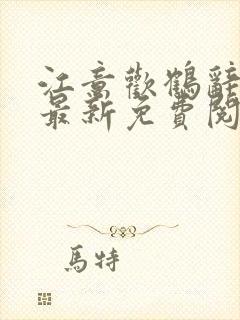 江意歡鶴辭
最新免費閱
馬特